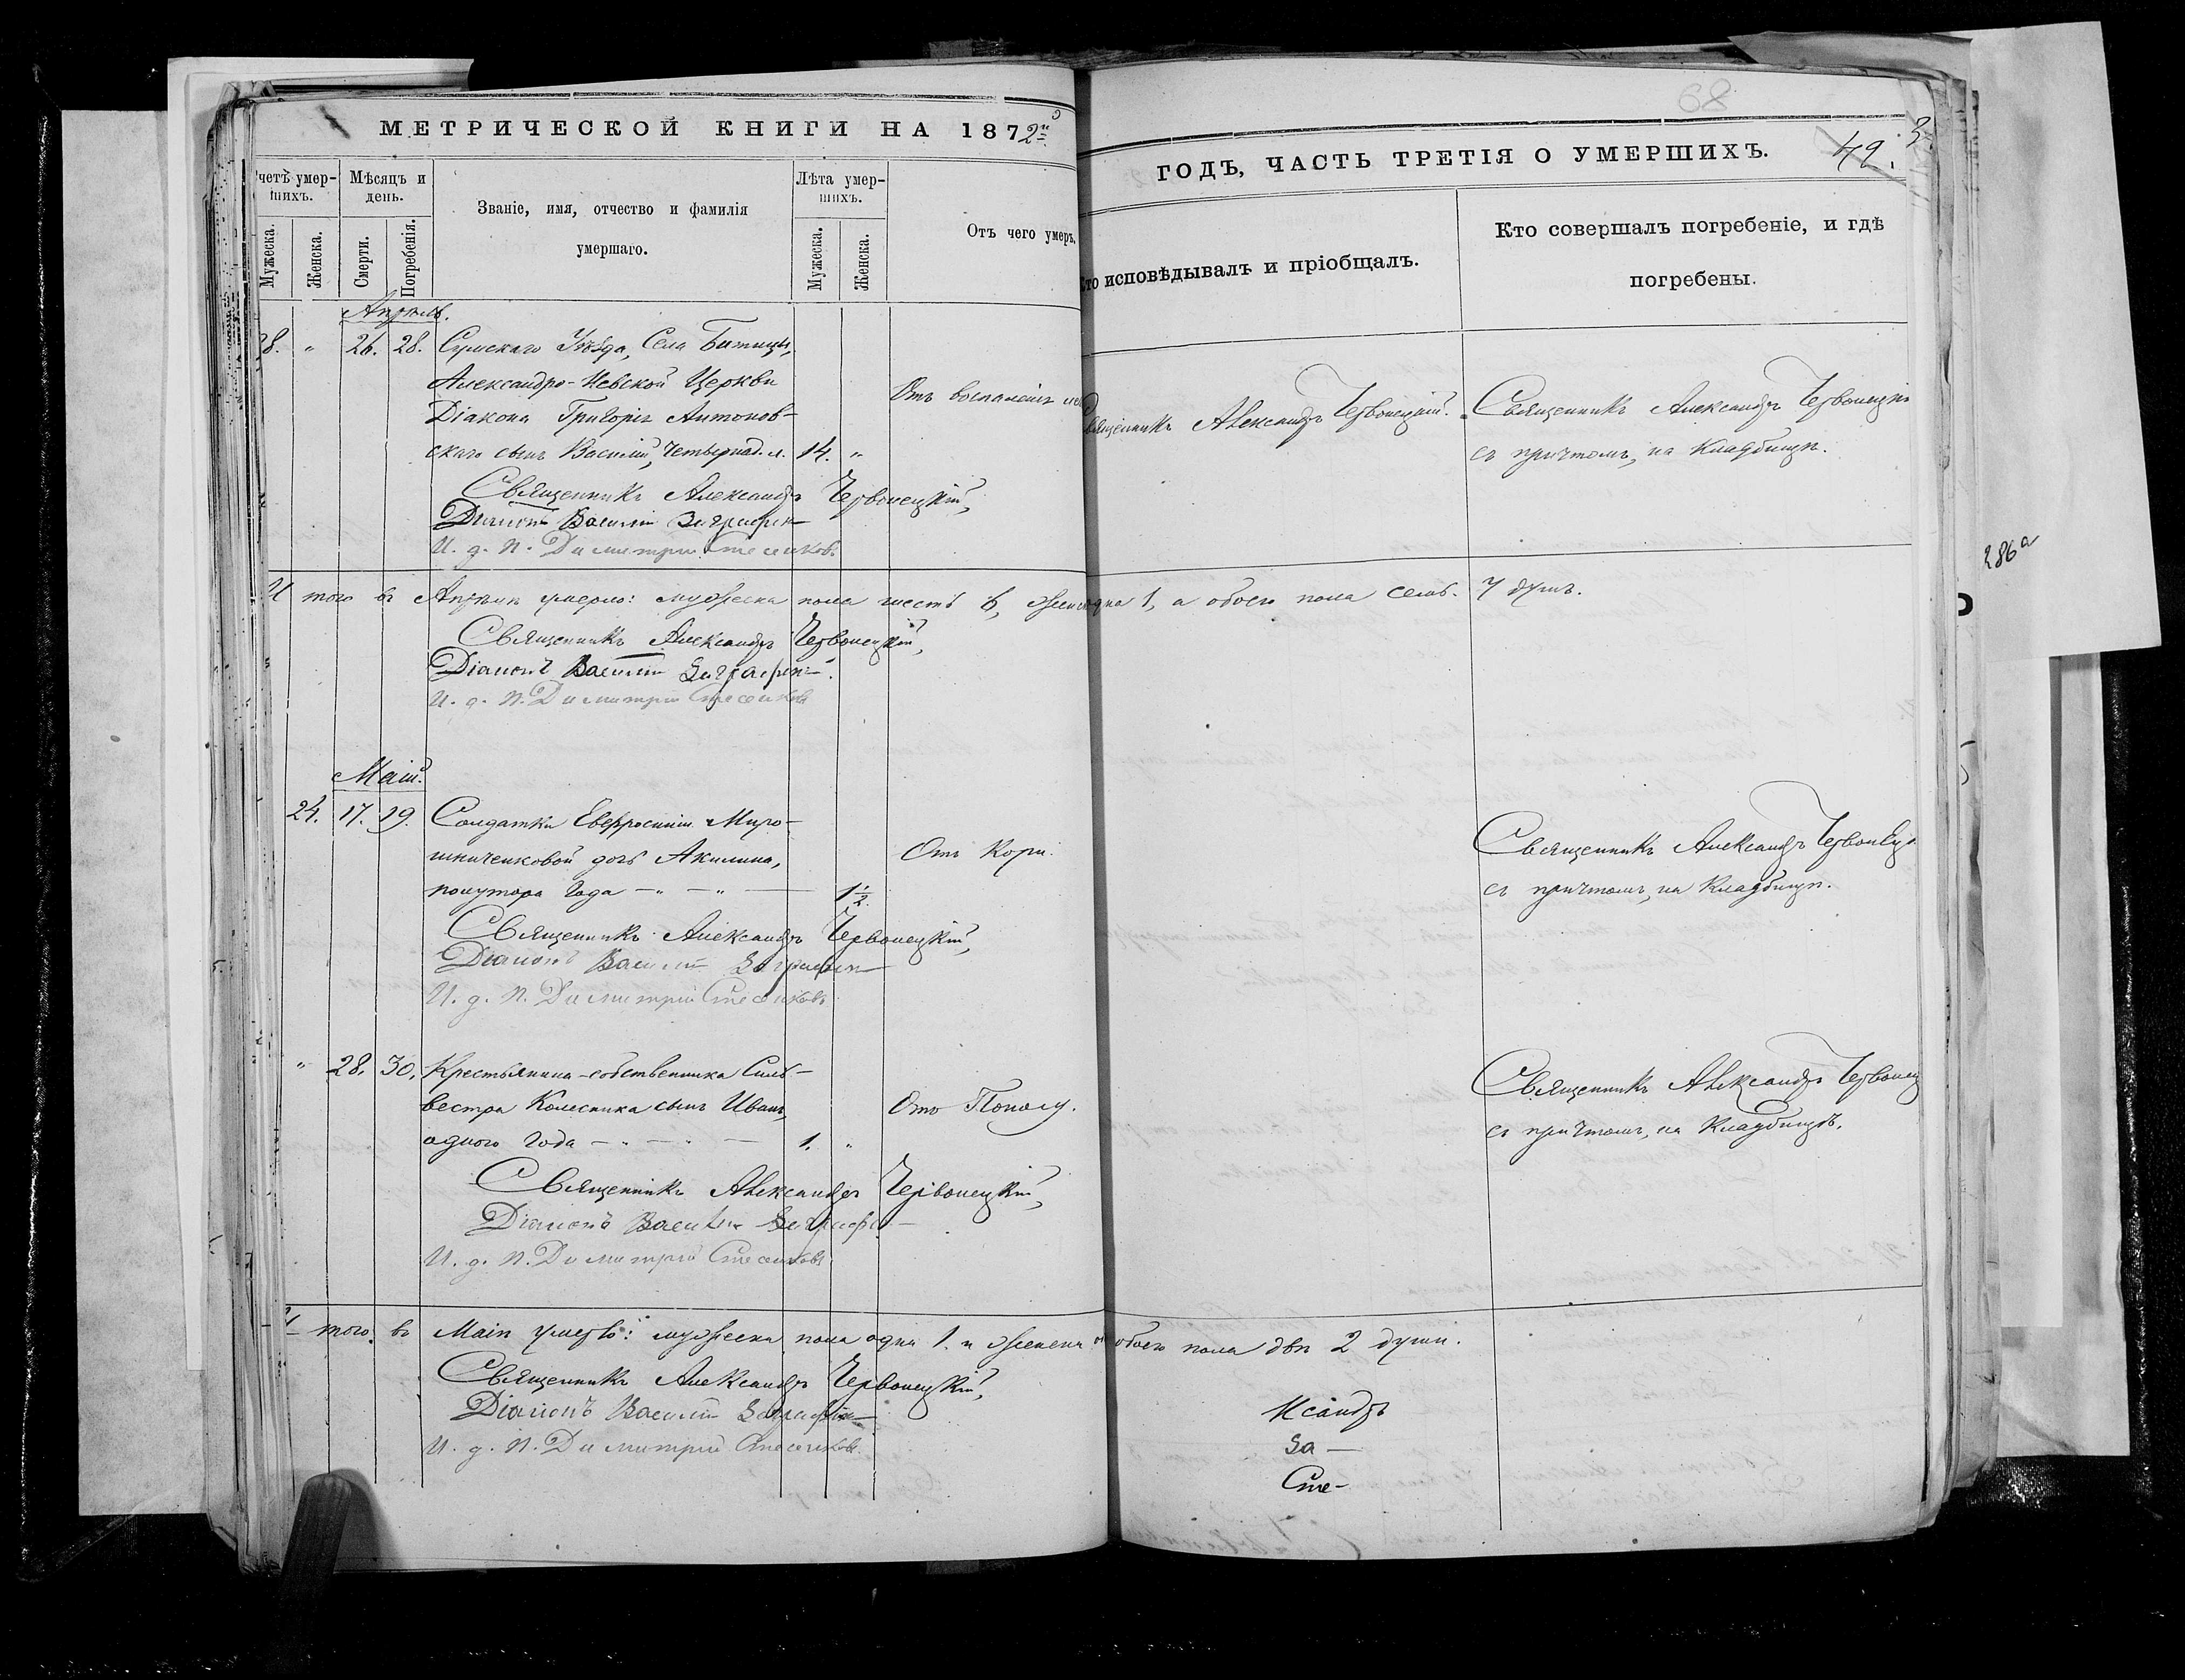 МЕТРИЧЕСКОЙ КНИГИ НА 1872й
ГОДЪ, ЧАСТЬ ТРЕТІЯ О УМЕРШИХЪ.
68
49.
3.
286а
четъ умер-
шихъ.
Мужеска.
Женска.
Мѣсяцъ и
день.
Смерти.
Погребенія.
Званіе, имя, отчество и фамилія
умершаго.
Лѣта умер-
шихъ.
Мужеска.
Женска.
Отъ чего умеръ.
то исповѣдывалъ и пріобщалъ.
Кто совершалъ погребеніе, и гдѣ
погребены.
Апрѣль.
28. " 26. 28. Сумскаго Уѣзда, Села Битицы,
Александро-Невской Церкви
Діакона Григорія Антонов-
скаго сынъ Василій, четырнад. л. 14. "
Отъ воспаленія
Священникъ Александръ Червонецкій.
Священникъ Александръ Червонецкій
съ причтомъ, на Кладбищѣ.
Священникъ Александръ Червонецкій,
Діаконъ Василій
И. д. П. Димитрій
И того въ Апрѣлѣ умерло: мужеска пола шесть 6, женска одна 1, а обоего пола семь. 7 душъ.
Священникъ Александръ Червонецкій,
Діаконъ Василій
И. д. П. Димитрій
Май.
24. 17. 19. Солдатки Евфросиніи Миро-
шниченковой дочь Акилина,
полутора года — " — " — 1½.
Отъ Кори.
Священникъ Александръ Червонец
съ причтомъ, на Кладбищѣ.
Священникъ Александръ Червонецкій,
Діаконъ Василій
И. д. П. Димитрій
" 28. 30. Крестьянина-собственника Силь-
вестра Колесника сынъ Иванъ,
одного года — " — " — 1. "
Отъ Поносу.
Священникъ Александръ Червонец
съ причтомъ, на Кладбищѣ.
Священникъ Александръ Червонецкій,
Діаконъ Василій
И. д. П. Димитрій
И того въ Маіѣ умерло: мужеска пола одна 1. и женска обоего пола двѣ 2 души.
Священникъ Александръ Червонецкій,
Діаконъ Василій
И. д. П. Димитрій
ксандръ
За—
Сте-